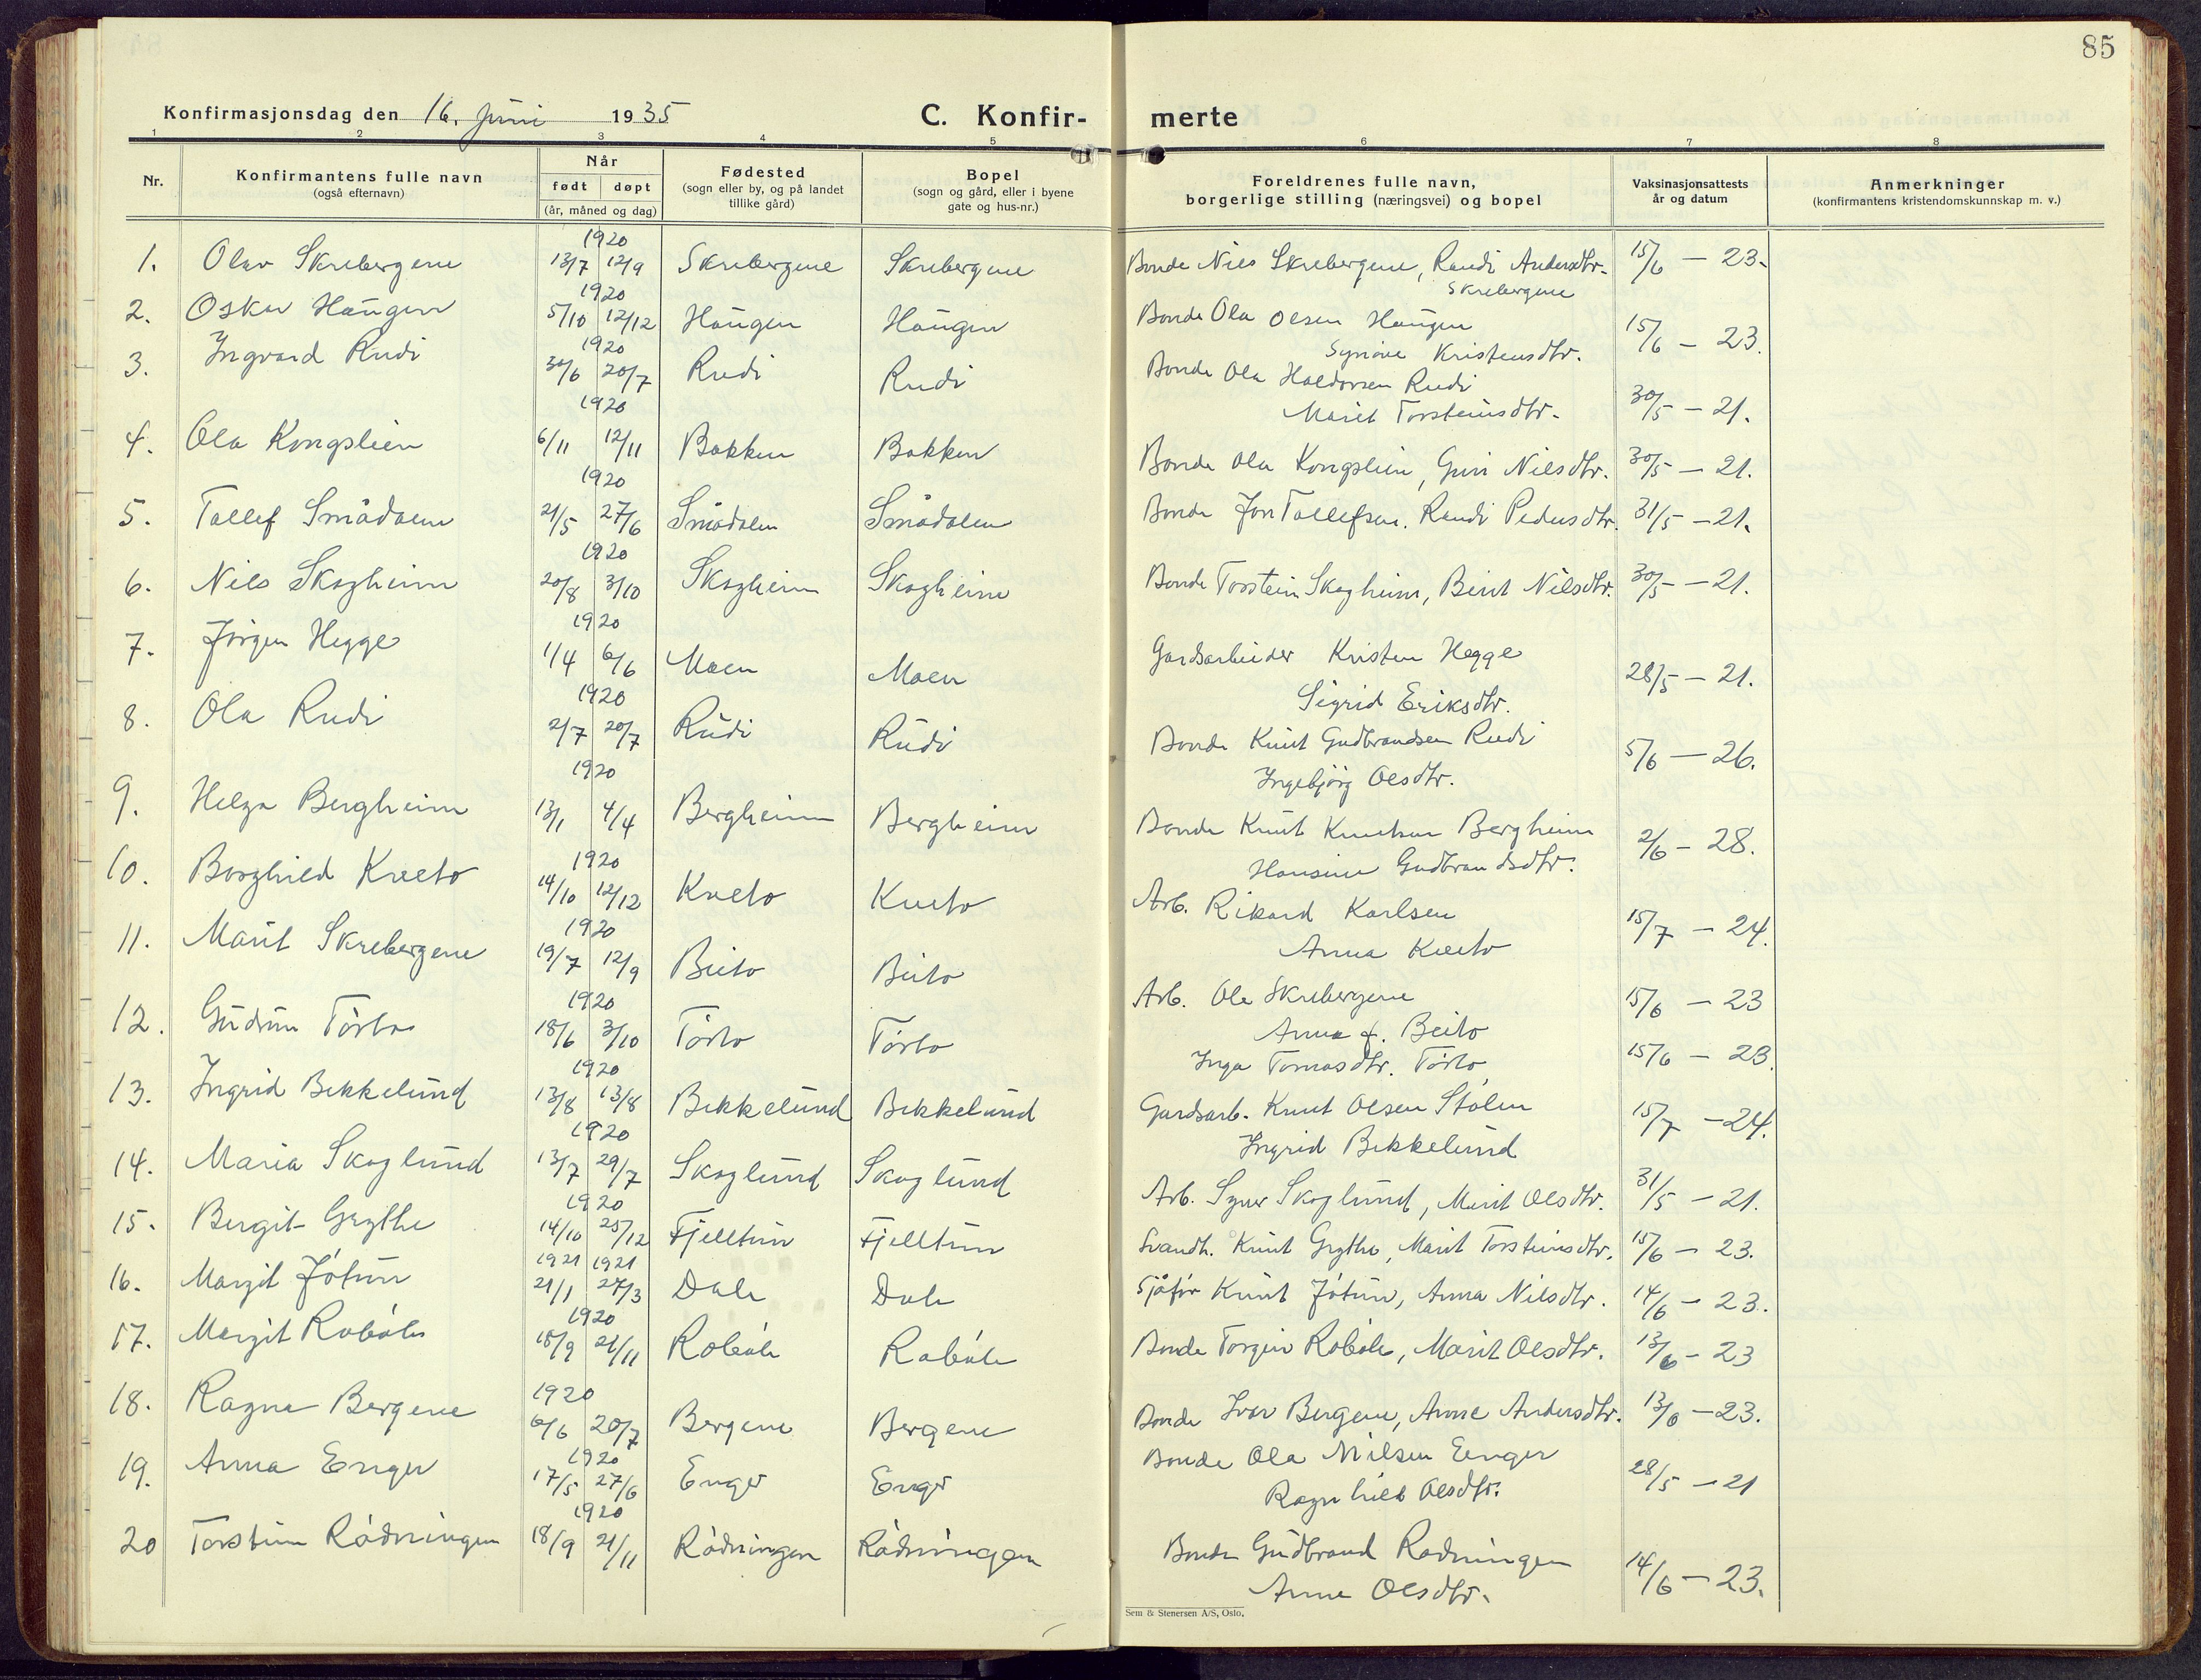 85
Konfirmasjonsdag den 16. juni 1935
C. Konfir- merte
1 2 3 4 5 6 7 8
Nr.
Konfirmantens fulle navn
(også efternavn)
Når
født døpt
(år, måned og dag)
Fødested
(sogn eller by, og på landet
tillike gård)
Bopel
(sogn og gård, eller i byene
gate og hus-nr.)
Foreldrenes fulle navn,
borgerlige stilling (næringsvei) og bopel
Vaksinasjonsattests
år og datum
Anmerkninger
(konfirmantens kristendomskunnskap m. v.)
1920
1. Olav Skrebergene 13/7 12/9 Skrebergene Skrebergene Bonde Nils Skrebergene, Randi Andersdtr. 15/6 – 23.
Skrebergene
1920
2. Oskar Haugen 5/10 12/12 Haugen Haugen Bonde Ola Olsen Haugen 15/6 – 23.
Synøve Kristensdtr.
1920
3. Ingvard Rudi 30/6 20/7 Rudi Rudi Bonde Ola Haldorsen Rudi 30/5 – 21.
Marit Torsteinsdtr.
1920
4. Ola Kongslien 6/11 12/11 Bakken Bakken Bonde Ola Kongslien, Guri Nilsdtr. 30/5 – 21.
1920
5. Tollef Smådalen 21/5 27/6 Smådalen Smådalen Bonde Jon Tollefsen. Randi Pedersdtr. 31/5 – 21.
1920
6. Nils Skogheim 20/8 3/10 Skogheim Skogheim Bonde Torstein Skogheim, Berit Nilsdtr. 30/5 – 21.
1920
7. Jørgen Hegge 1/4 6/6 Moen Moen Gardsarbeider Kristen Hegge 28/5 – 21.
Sigrid Eriksdtr.
1920
8. Ola Rudi 2/7 20/7 Rudi Rudi Bonde Knut Gudbrandsen Rudi 5/6 – 26.
Ingebjørg Olsdtr.
1920
9. Helga Bergheim 13/1 4/4 Bergheim Bergheim Bonde Knut Knutsen Bergheim 2/6 – 28.
Hansine Gudbrandsdtr.
1920
10. Borghild Kveto 14/10 12/12 Kveto Kveto Arb. Rikard Karlsen 15/7 – 24.
Anna Kveto
1920
11. Marit Skrebergene 19/7 12/9 Beito Beito Arb. Ole Skrebergene 15/6 – 23
Anna f. Beito
1920
12. Gudrun Torto 18/6 3/10 Torto Torto Inga Tomasdtr. Torto 15/6 – 23.
1920
13. Ingrid Bekkelund 13/8 13/8 Bekkelund Bekkelund Gardsarb. Knut Olsen Stølen 15/7 – 24.
Ingrid Bekkelund
1920
14. Maria Skoglund 13/7 29/7 Skoglund Skoglund Arb. Syver Skoglund, Marit Olsdtr. 31/5 – 21.
1920
15. Bergit Grythe 14/10 25/12 Fjelltun Fjelltun Knut Grythe, Marit Torsteinsdtr. 15/6 – 23.
1921 1921
16. Margit Jótun 21/1 27/3 Dale Dale Sjåfør Knut Jótun, Anna Nilsdtr. 14/6 – 23.
1920
17. Margit Robøle 18/9 21/11 Robøle Robøle Bonde Torgeir Robøle, Marit Olsdtr. 13/6 – 23
1920
18. Ragna Bergene 6/6 20/7 Bergene Bergene Bonde Ivar Bergene, Anne Andersdtr. 13/6 – 23.
1920
19. Anna Enger 17/5 27/6 Enger Enger Bonde Ola Nilsen Eenger 28/5 – 21
Ragnhild Olsdtr.
1920
20 Torstein Rødningen 18/9 21/11 Rødningen Rødningen Bonde Gudbrand Rødningen 14/6 – 23.
Anne Olsdtr.
Sem & Stenersen A/S, Oslo.